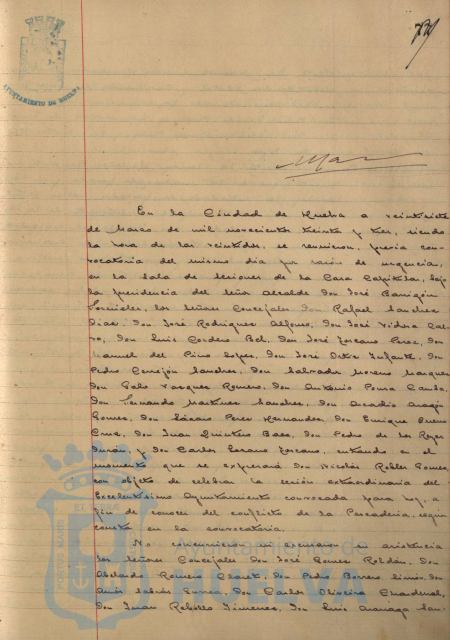 AYUNTAMIENTO DE HUELVA
En la Ciudad de Huelva a veintisiete
de Marzo de mil novecientos treinta y tres, siendo
la hora de las veintidós, se reunieron, previa con-
vocatoria del mismo día por razón de urgencia,
en la Sala de Sesiones de la Casa Capitular, bajo
la presidencia del Señor Alcalde Don José Barrigón
los Señores Concejales Don Rafael Sanchez
Diaz, Don José Rodriguez Alfonso, Don José
Don Luis Cordero Bel, Don José Pérez, Don
Manuel del Pino Lopez, Don José Infante, Don
Pedro Cerrejón Sanchez, Don Salvador Moreno Marquez
Don Pablo Vazquez Romero, Don Antonio Ponce
Don Fernando Martinez Sanchez, Don Arcadio Aragón
Gomez, Don Perez Hernandez, Don Enrique Bueno
Cruz, Don Juan Quintero Baez, Don Pedro de los Reyes
Durán, y Don Carlos Serano entrando en el
momento que se expresará Don Nicolás Robles Gomez,
con objeto de celebrar la sesión extraordinaria del
Excelentísimo Ayuntamiento convocada para hoy, a
fin de conocer del conflicto de la Pescadería, según
consta en la convocatoria.
No concurrieron ni excusaron su asistencia
los Señores Concejales Don José Gomez Roldán, Don
Abelardo Romero Don Pedro Borrero Don
Don Carlos Oliveira Don
Don Juan Rebollo Jimenez, Don Luis
Ayuntamiento de
HUELVA